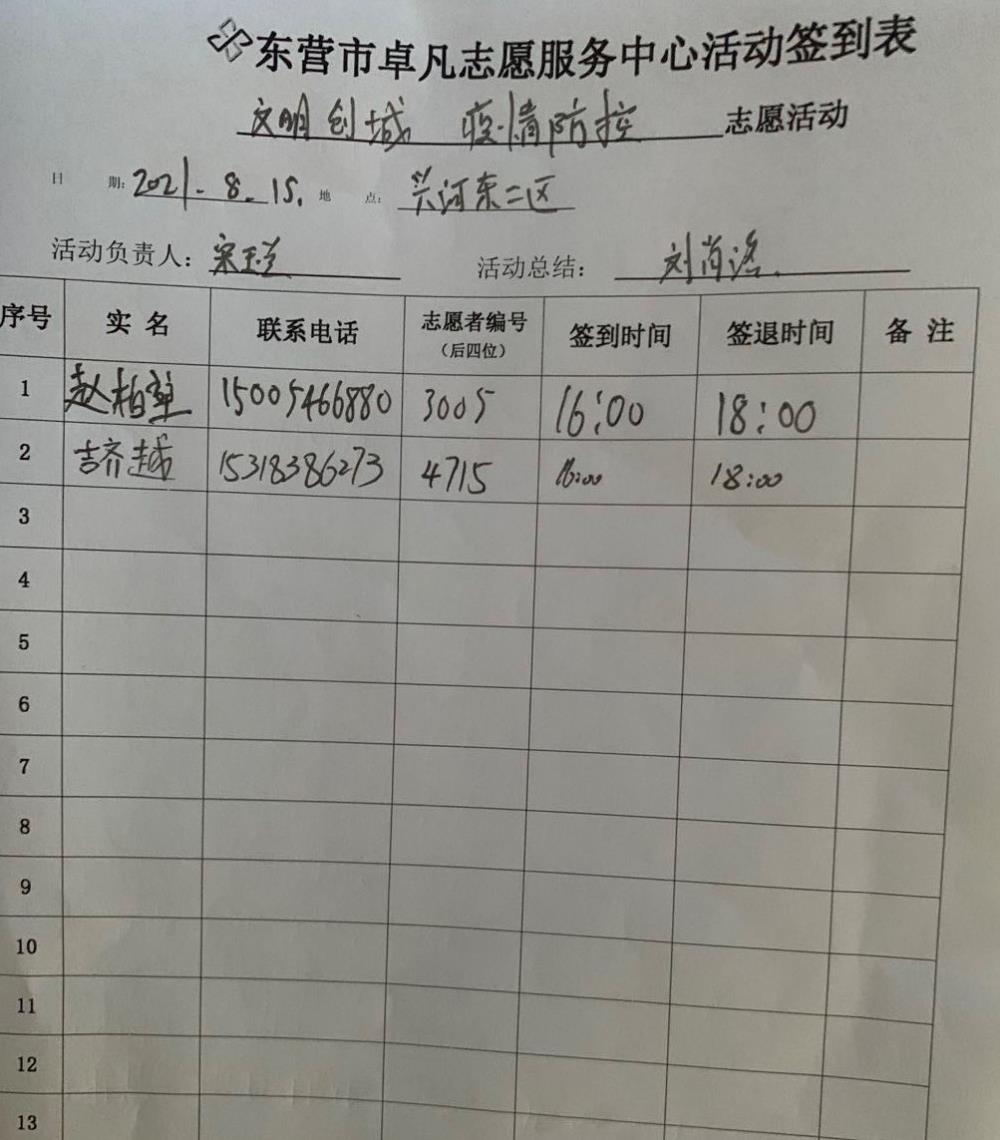 东营市卓凡志愿服务中心活动签到表
文明创城 疫情防控 志愿活动
日 期: 2021.8.15. 地 点: 兴河东二区
活动负责人: 宋玉兰 活动总结: 刘肖
序号 实名 联系电话 志愿者编号(后四位) 签到时间 签退时间 备注
1 赵柏 15005466880 3005 16:00 18:00
2 吉齐越 15318386273 4715 16:00 18:00
3
4
5
6
7
8
9
10
11
12
13